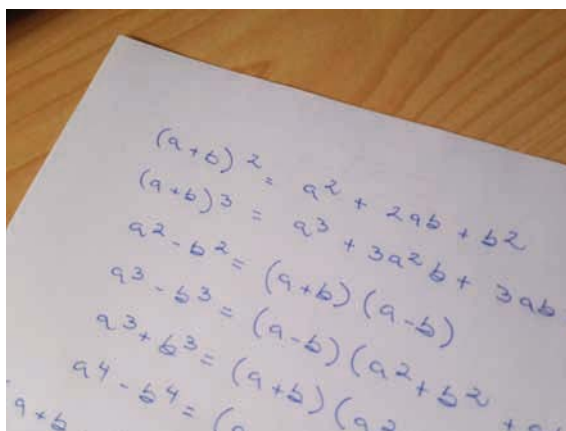 (a+b)² = a² + 2ab + b²
(a+b)³ = a³ + 3a²b + 3ab
a² - b² = (a+b)(a-b)
a³ - b³ = (a-b)(a² + b² + a
a³ + b³ = (a+b)(a²
a⁴ - b⁴ = (a
a+b